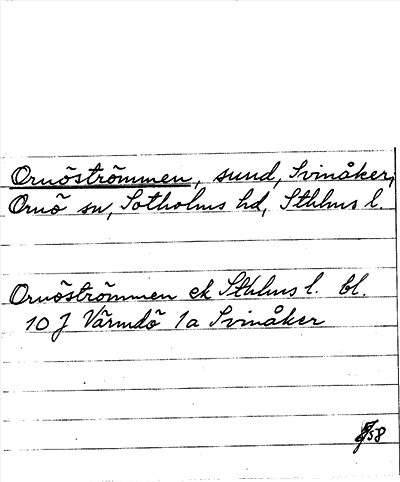 Ornöströmmen, sund, Svinåker,
Ornö sn, Sotholms hd, Sthlms l.
Ornöströmmen ek Sthlms l. bl.
10 J Värmdö 1a Svinåker
58